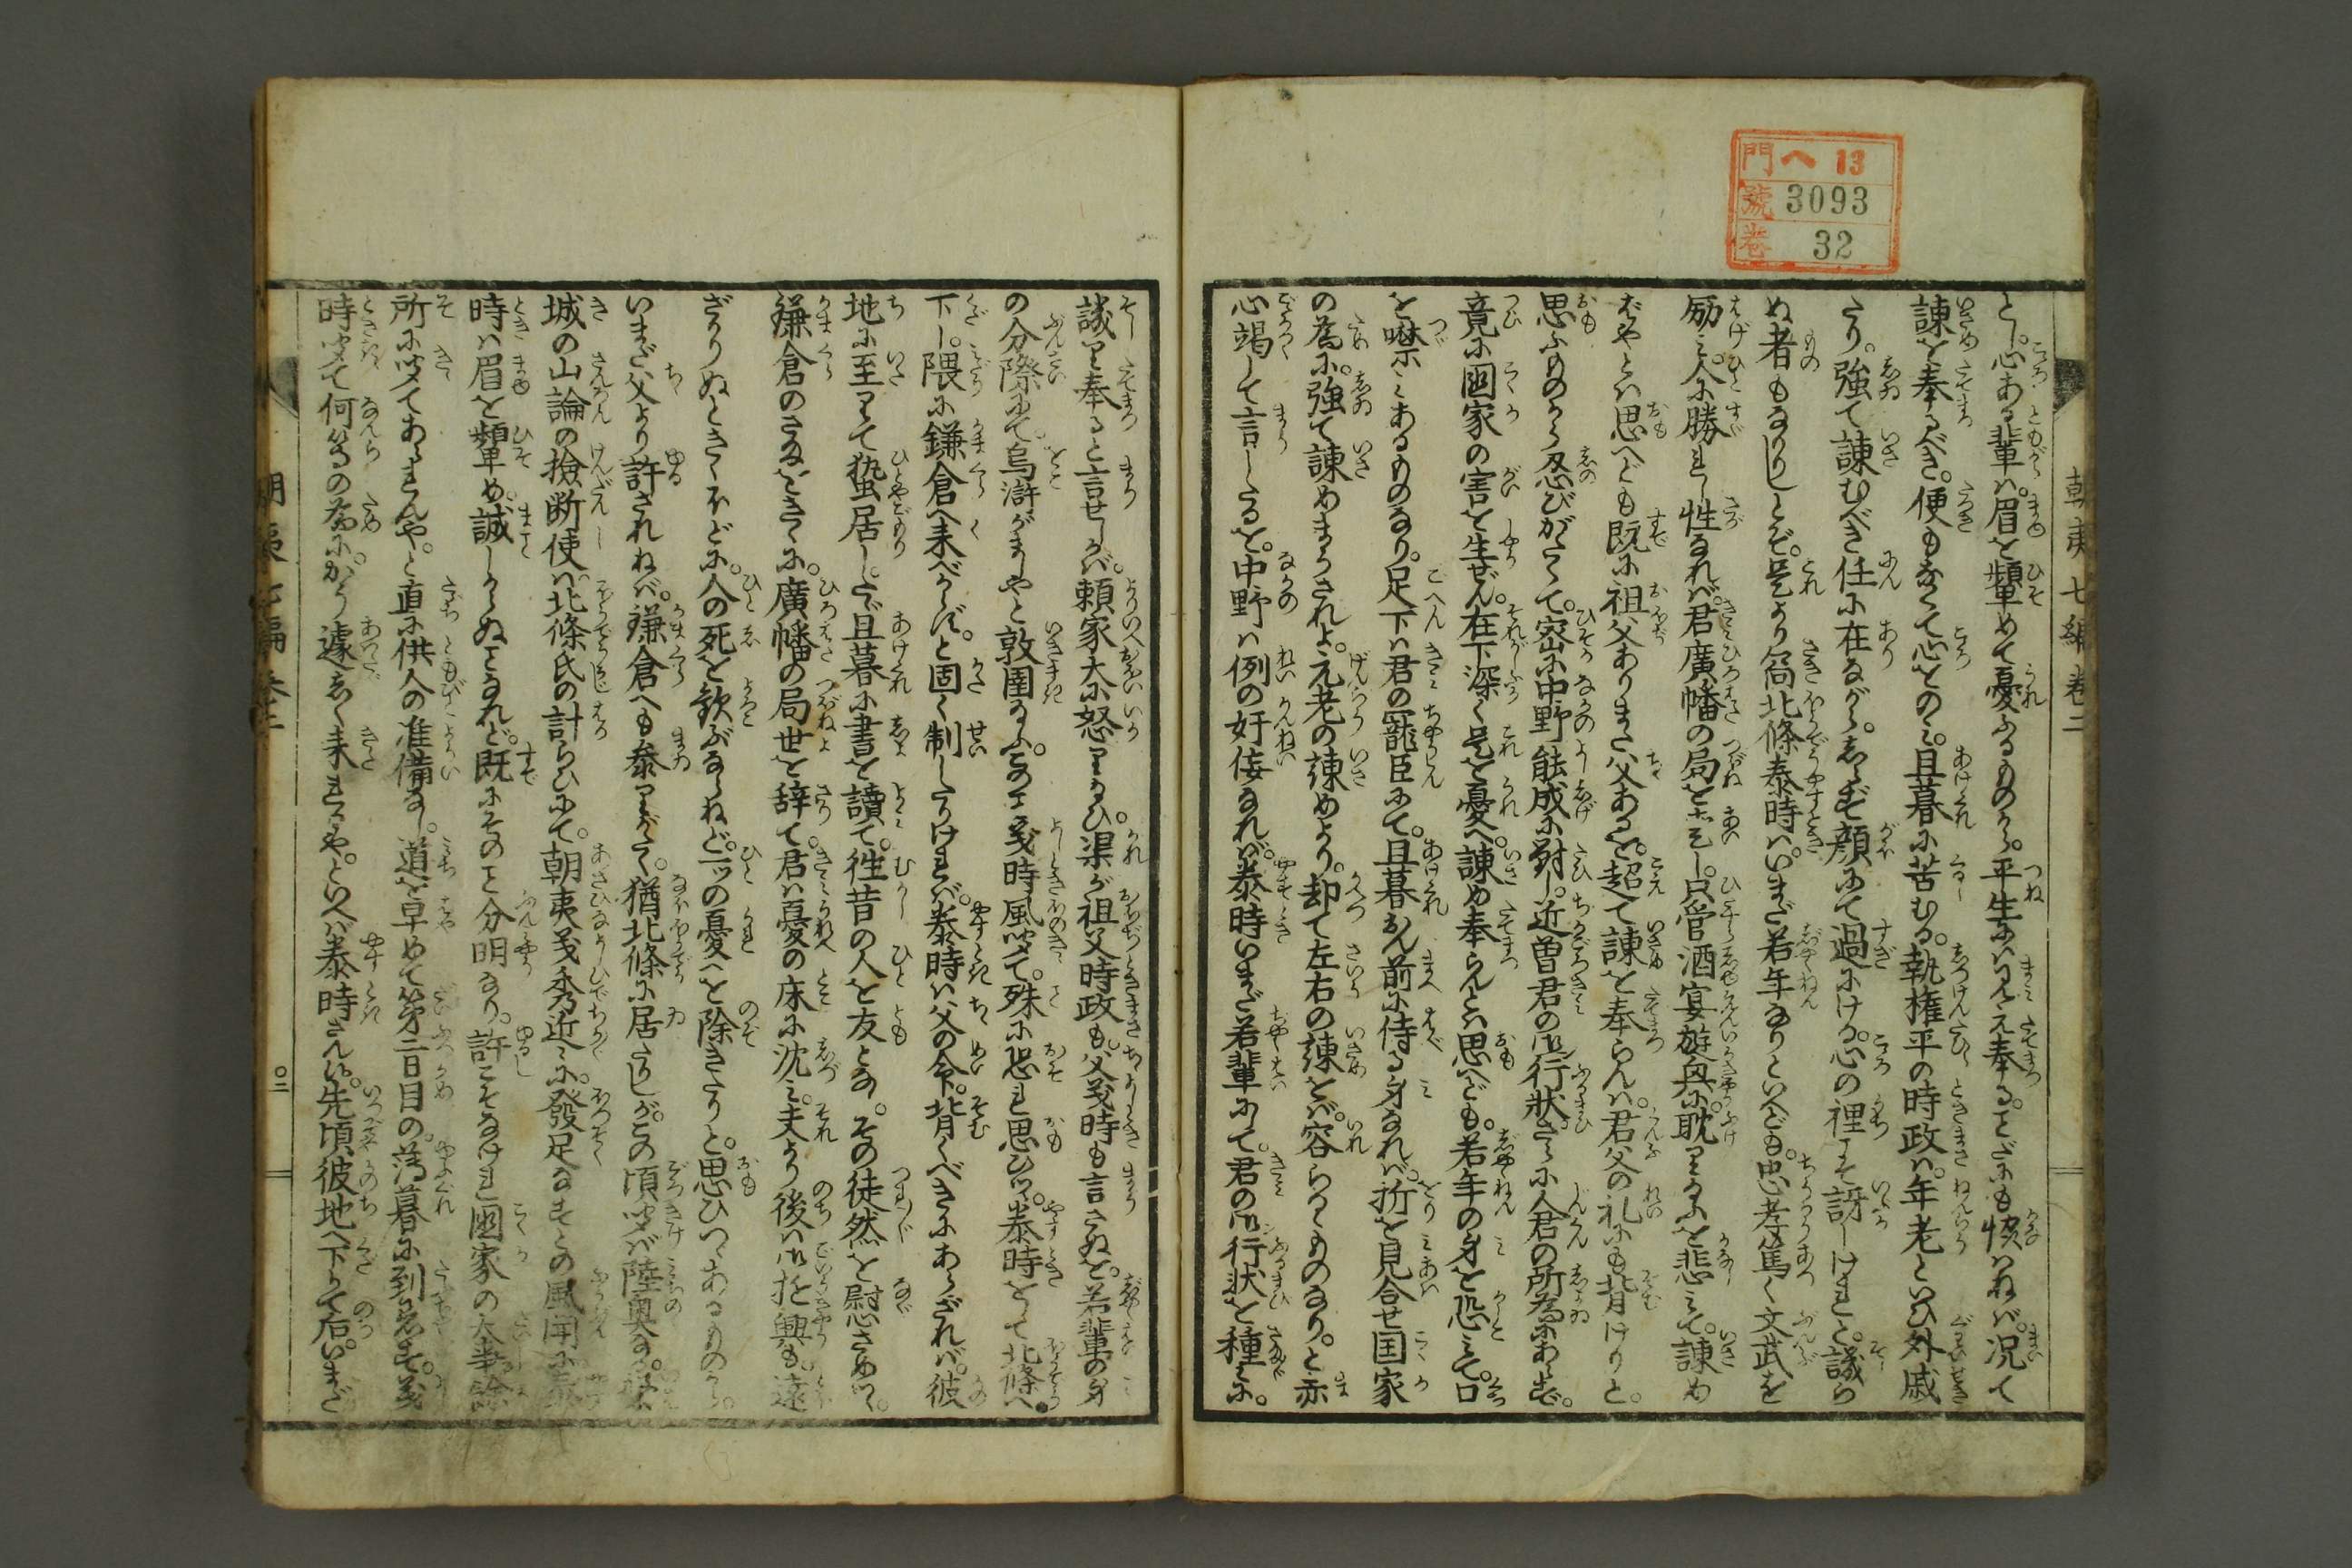 門 へ 13
號 3093
卷 32
朝夷七編卷二
とし。心ある輩ハ。眉を顰めて憂ふるものから。平生にハ見え奉る。ことだにも快ハねバ。况て
諌を奉るべき。便もなくて心をのミ。旦暮に苦むる。執権平の時政ハ。年老といひ外戚
たり。強て諌むべき任に在ながら。しらず顔にて過にける。心の裡こそ訝しけれと。譏ら
ぬ者もなかりしとぞ。是より前北條泰時ハ。いまだ若年なりといへども。忠孝篤く文武を
励ミ。人に勝れし性なれバ。君廣幡の局を愛し。只管酒宴遊興に。耽り玉ふを悲ミて。諌め
ばやとハ思へども。既に祖父あり又父あるを。超て諌を奉らんハ。君父の礼にも背けりと。
思ふものから忍びがたくて。密に中野能成に對し。近曽君の御行状。さらに人君の所為にあらず。
竟に国家の害を生ぜん。在下深く是を憂へ。諌め奉らんとハ思へども。若年の身を恐ミて。口
を噤ミあるものなり。足下ハ君の寵臣にて。旦暮御ん前に侍る身なれバ。折を見合せ国家
の為に。強て諌めまうされよ。元老の諌めより。却て左右の諌をバ。容らるゝものなり。と赤
心竭して言しゝるを。中野ハ例の奸佞なれバ。泰時いまだ若輩にて。君の御行状を種々に。
譏り奉ると言せしかバ。頼家大に怒り玉ひ。渠が祖父時政も。父義時も言さぬを。若輩の身
の分際にて。烏滸がましやと敦圉玉ふ。この事義時風聞て。殊に恐れ思ひツ。泰時をして北條へ
下し。隈に鎌倉へ来べからず。と固く制したりけれバ。泰時ハ父の命。背くべきにあらざれバ。彼
地に至りて蟄居しつ。旦暮に書を讀て。徃昔の人を友とな。その徒然を慰さめツゝ。
鎌倉のさまをきくに。廣幡の局世を辞て。君ハ憂の床に沈ミ。夫より後ハ御遊興も。遠
ざかりぬときくほどに。人の死を歓ぶならねど。一ツの憂へを除きたりと。思ひつゝあるものから。
いまだ父より許されねバ。鎌倉へも参りがたく。猶北條に居たりしが。この頃聞バ陸奥の。
城の山論の撿断使ハ。北條氏の計らひにて。朝夷義秀近々に。發足なすとの風聞に
時ハ眉を顰め。誠しからぬことなれど。既にその事分明なり。許こそなけれ国家の大事
所に聞てあられんや。と直に供人の准備なし。道を早めて第二日目の。薄暮に到着す。義
時聞て何等の為に。かう遽しく来れるや。といへバ泰時さん候。先頃彼地へ下りて后。いまだ
朝夷七編卷二
〇二